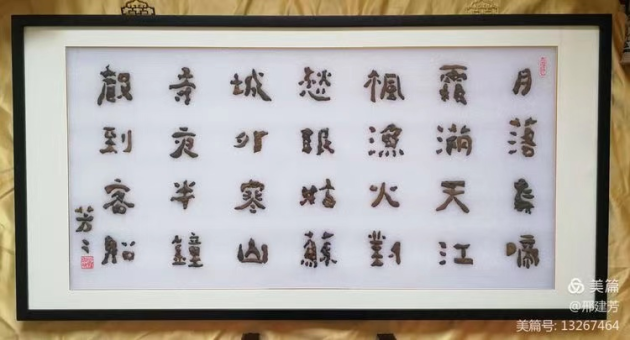 月落烏啼
霜滿天江
楓漁火對
愁眠姑蘇
城外寒山
寺夜半鐘
聲到客船
芳
美篇
@邢建芳
美篇号: 13267464